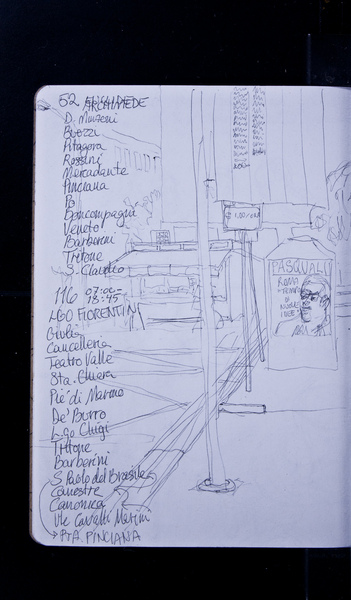 52 ARCHIMEDE
D. Manzoni
Buozzi
Pitagora
Rossini
Mercadante
Pinciana
Po
Boncompagni
Veneto
Barberini
Tritone
S. Claudio
116 07:00-
18:45
LGO FIORENTINI
Giulia
Cancelleria
Teatro Valle
Sta. Chiara
Piè di Marmo
De' Burro
Lgo Chigi
Tritone
Barberini
S. Paolo del Brasile
Canestre
Canonica
Vle Cavalli Marini
PTA PINCIANA
PASQUALI
ROMA